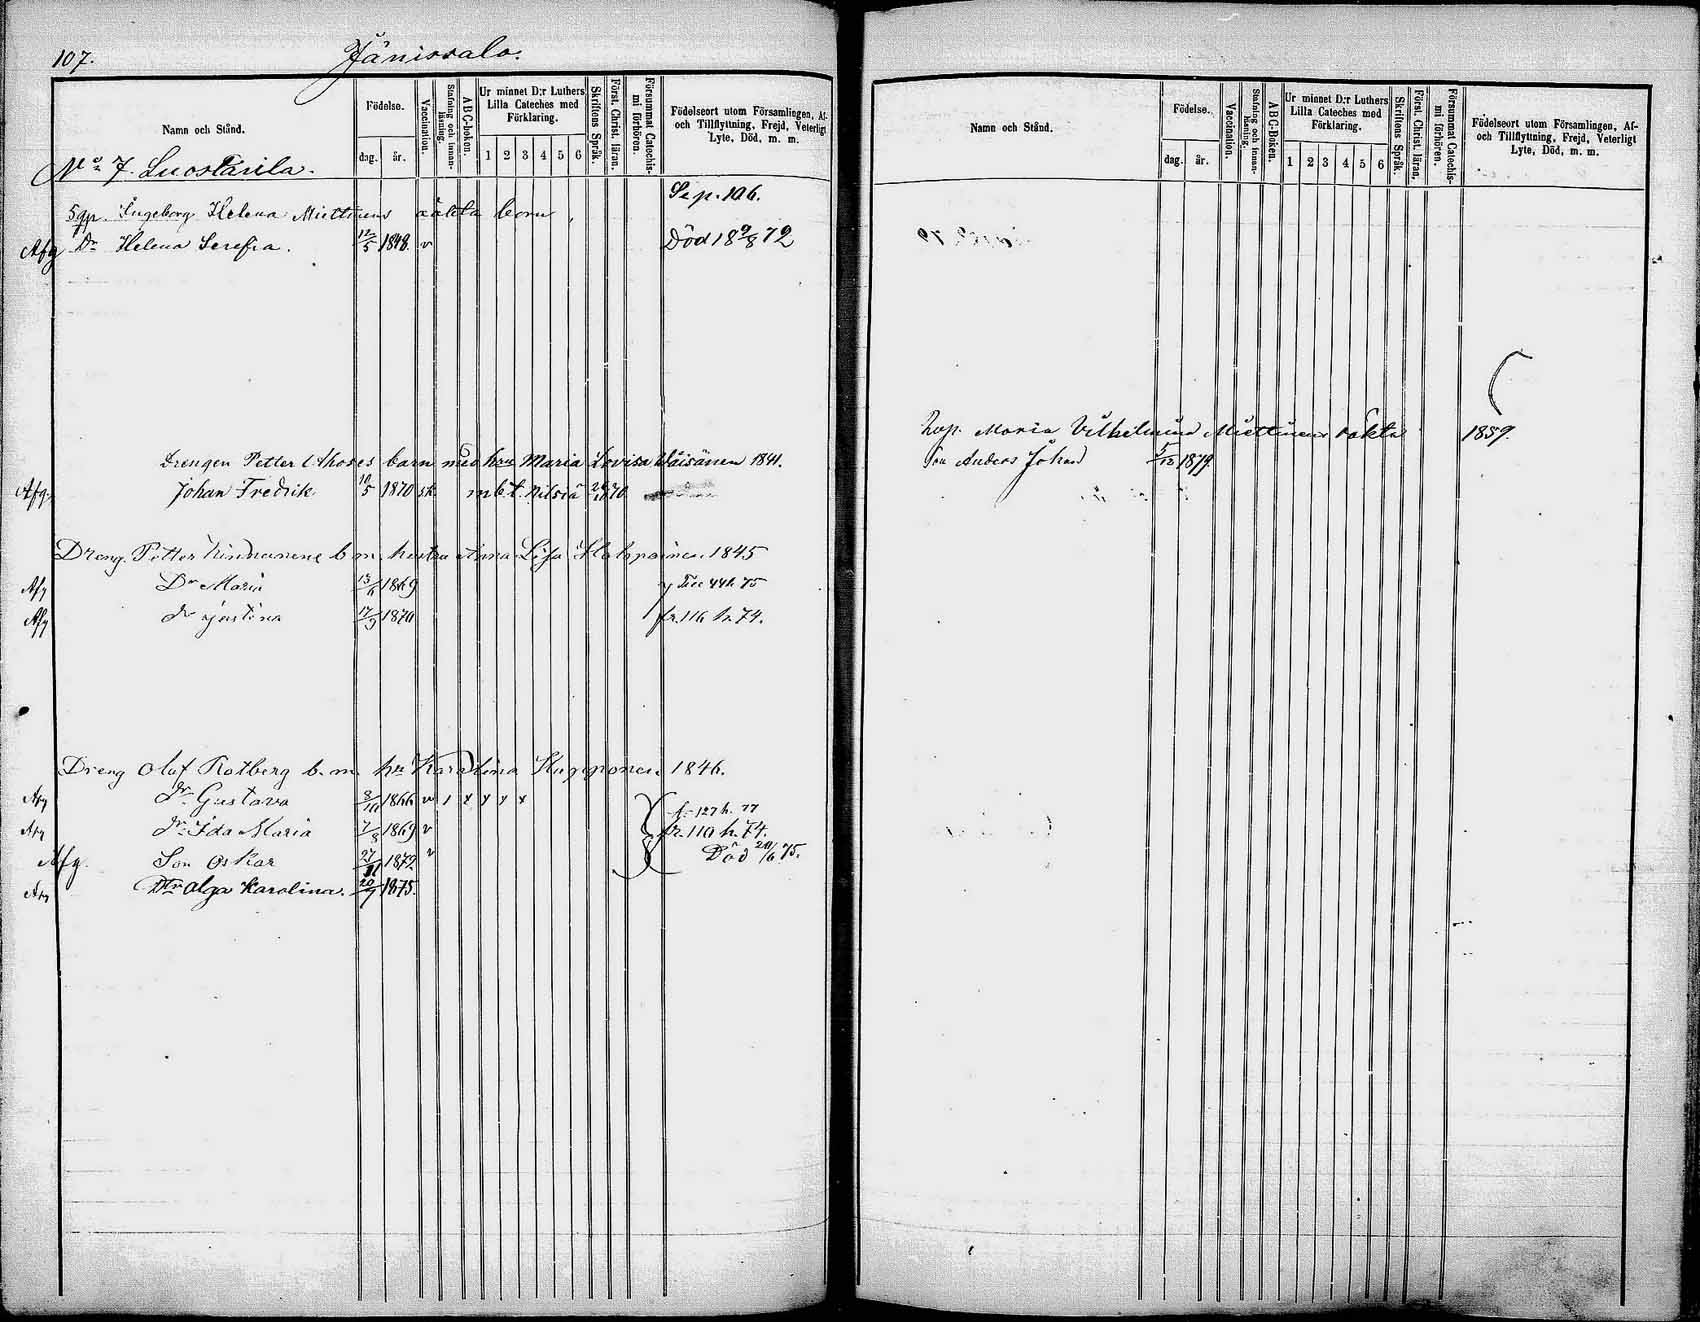 107. Jänissalo.
Namn och Stånd.
Födelse.
dag. år.
Vaccination.
Stafning och innan-läsning.
ABC-boken.
Ur minnet D:r Luthers Lilla Cateches med Förklaring.
1 2 3 4 5 6
Skriftens Språk.
Först. Christ. läran.
Försummat Catechis-mi förhören.
Födelseort utom Församlingen, Af- och Tillflyttning, Frejd, Veterligt Lyte, Död, m. m.
No 7. Luostarila.
Se p. 106.
Ingeborg Helena Miettinens oäkta barn
Afg Dr Helena Serefia. 12/5 1848. v Död 18 9/8 72
Drengen Petter Ahoses barn med hru Maria Lovisa Väisänen 1841.
Afg. Johan Fredrik 10/5 1870 sk. m b t. Nilsiä 70
Dreng. Petter b m hustru Anna Lisa 1845
Afg Dr Maria 1869 75
Afg Dr Justina 17/9 1870 fr. 116 h. 74.
Dreng Olof Rotberg b. m. hu Karolina 1846.
Afg Dr Gustava 8/10 1866 v f. 127 h. 77
Afg Dr Ida Maria 7/8 1869 v fr. 110 h. 74.
Afg. Son Oskar 27/11 1872 v Död 20/6 75.
Afg Dtr Olga Karolina. 20/7 1875.
Namn och Stånd.
Födelse.
dag. år.
Vaccination.
Stafning och innan-läsning.
ABC-Boken.
Ur minnet D:r Luthers Lilla Cateches med Förklaring.
1 2 3 4 5 6
Skriftens Språk.
Först. Christ. läran,
Försummat Catechis-mi förhören.
Födelseort utom Församlingen, Af- och Tillflyttning, Frejd, Veterligt Lyte, Död, m. m.
Maria Vilhelmina Miettinens oäkta 1859.
Son Anders Johan 5/12 1879.